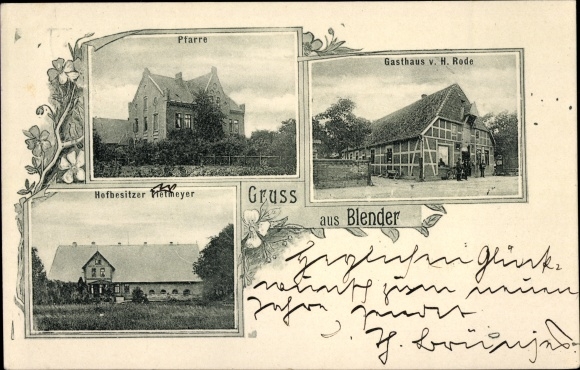 Pfarre
Gasthaus v. H. Rode
Hofbesitzer Tietmeyer
Gruss
aus Blender
Herzlichen Glück-
wunsch zum neuen
Jahre sendet
H. Brünjes.